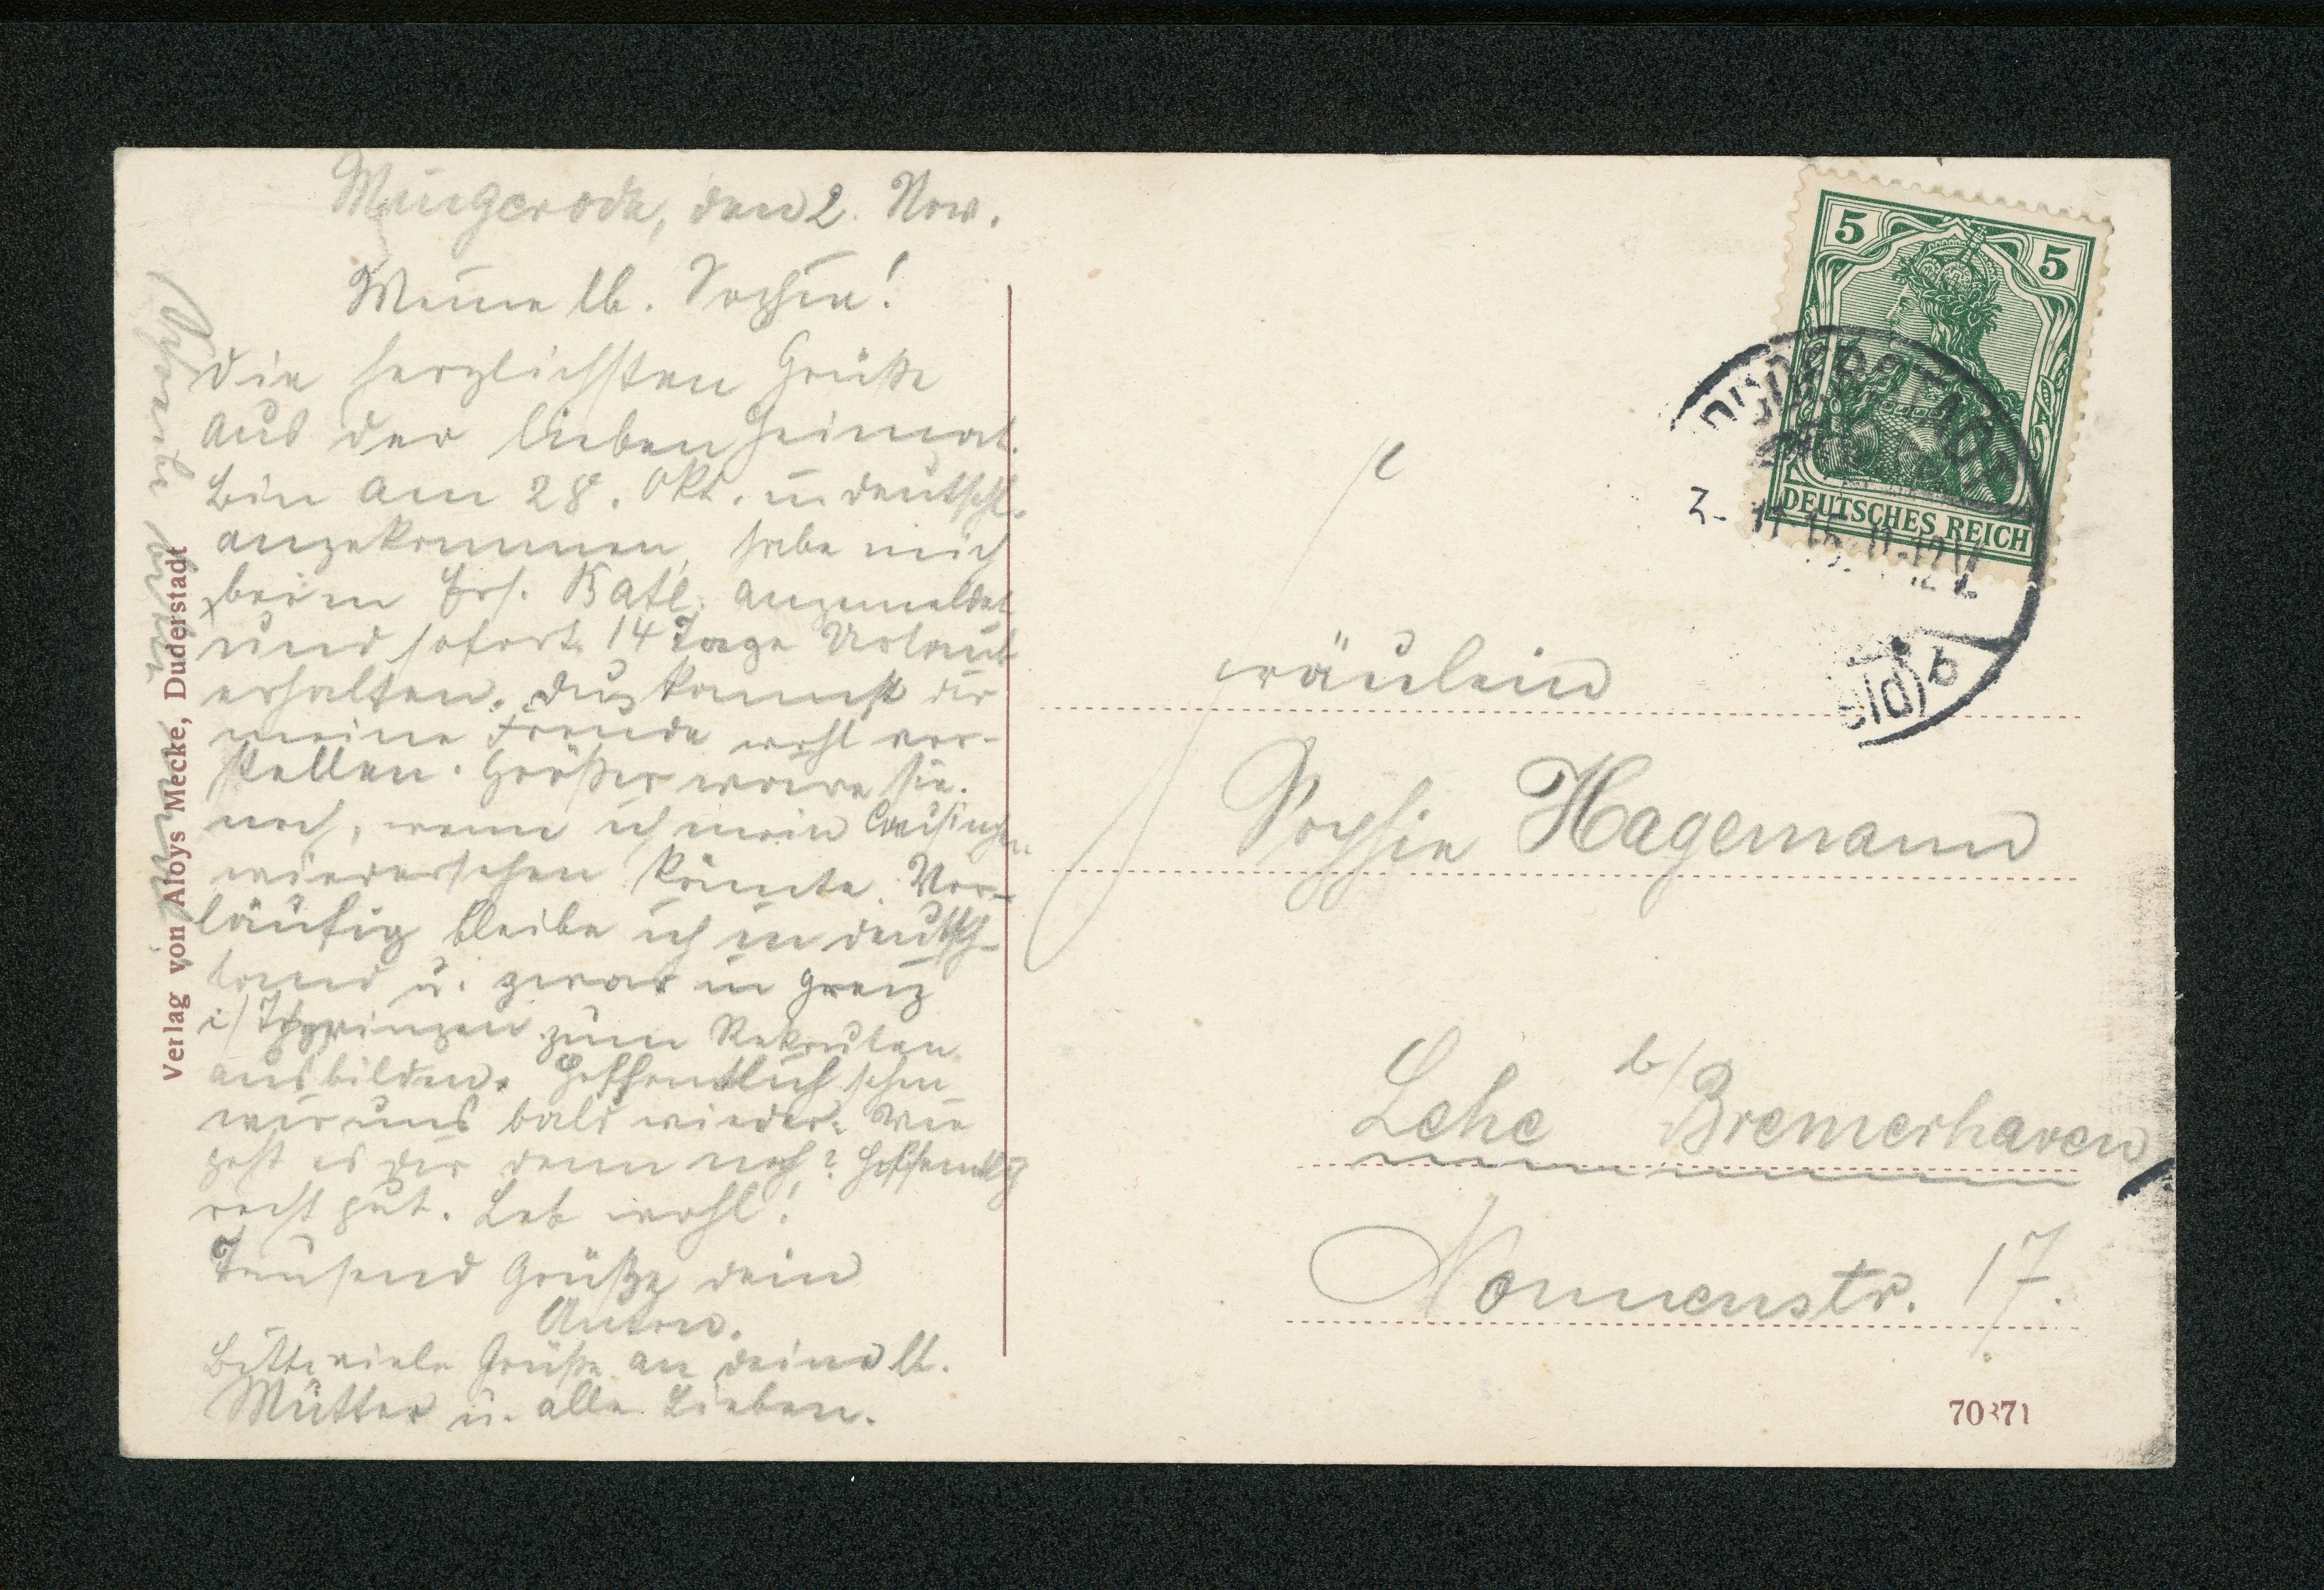 Mingerode, den 2. Nov.
Meine lb. Sophie!
Die herzlichsten Grüße
aus der lieben Heimat.
Bin am 28. Okt. in Deutschl.
angekommen, habe mich
beim Ers. Batl. angemeldet
und sofort 14 Tage Urlaub
erhalten. Du kannst dir
meine Freude wohl vor-
stellen. Größer wäre sie
noch, wenn ich mein
wiedersehen könnte. Vor-
läufig bleibe ich in Deutsch-
land u. zwar in Greiz
i/Thüringen zum Rekruten
ausbilden. Hoffentlich sehen
wir uns bald wieder. Wie
geht es dir denn noch? Hoffentlich
recht gut. Leb wohl!
Tausend Grüße dein
Anton.
Bitte viele Grüße an deine lb.
Mutter u. alle Lieben.
Verlag von Aloys Mecke, Duderstadt
5 5
DEUTSCHES REICH
DUDERSTADT
3. 11 15. 11-12 V
eld) b
Fräulein
Sophie Hagemann
Lehe b/ Bremerhaven
Nonnenstr. 17.